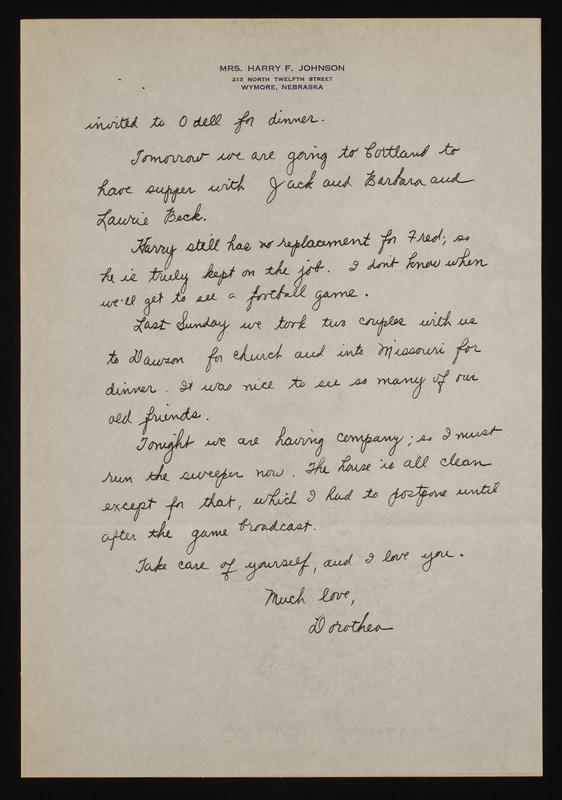 MRS. HARRY F. JOHNSON
213 NORTH TWELFTH STREET
WYMORE, NEBRASKA
invited to Odell for dinner.
Tomorrow we are going to Cortland to
have supper with Jack and Barbara and
Laurie Beck.
Harry still has no replacement for Fred; so
he is truly kept on the job. I don't know when
we'll get to see a football game.
Last Sunday we took two couples with us
to Dawson for church and into Missouri for
dinner. It was nice to see so many of our
old friends.
Tonight we are having company; so I must
run the sweeper now. The house is all clean
except for that, which I had to postpone until
after the game broadcast.
Take care of yourself, and I love you.
Much love,
Dorothea